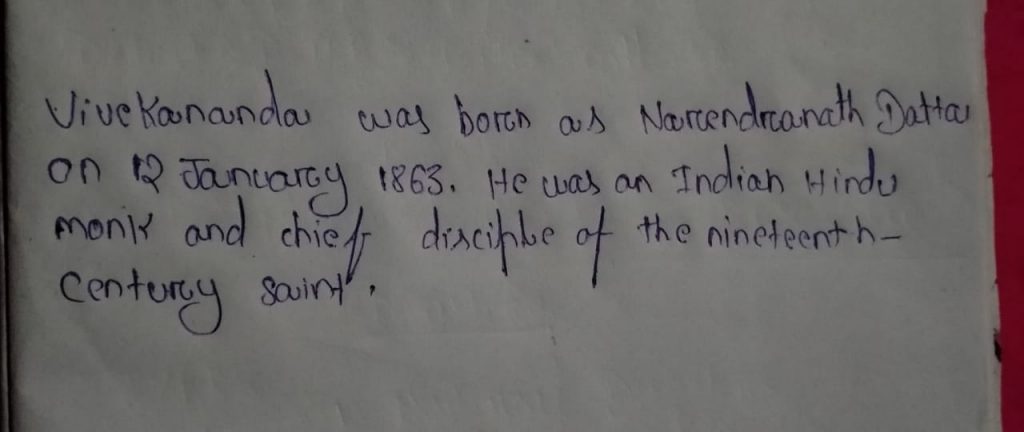 Vivekananda was born as Narendranath Datta
on 12 January 1863. He was an Indian Hindu
monk and chief disciple of the nineteenth-
Century saint.